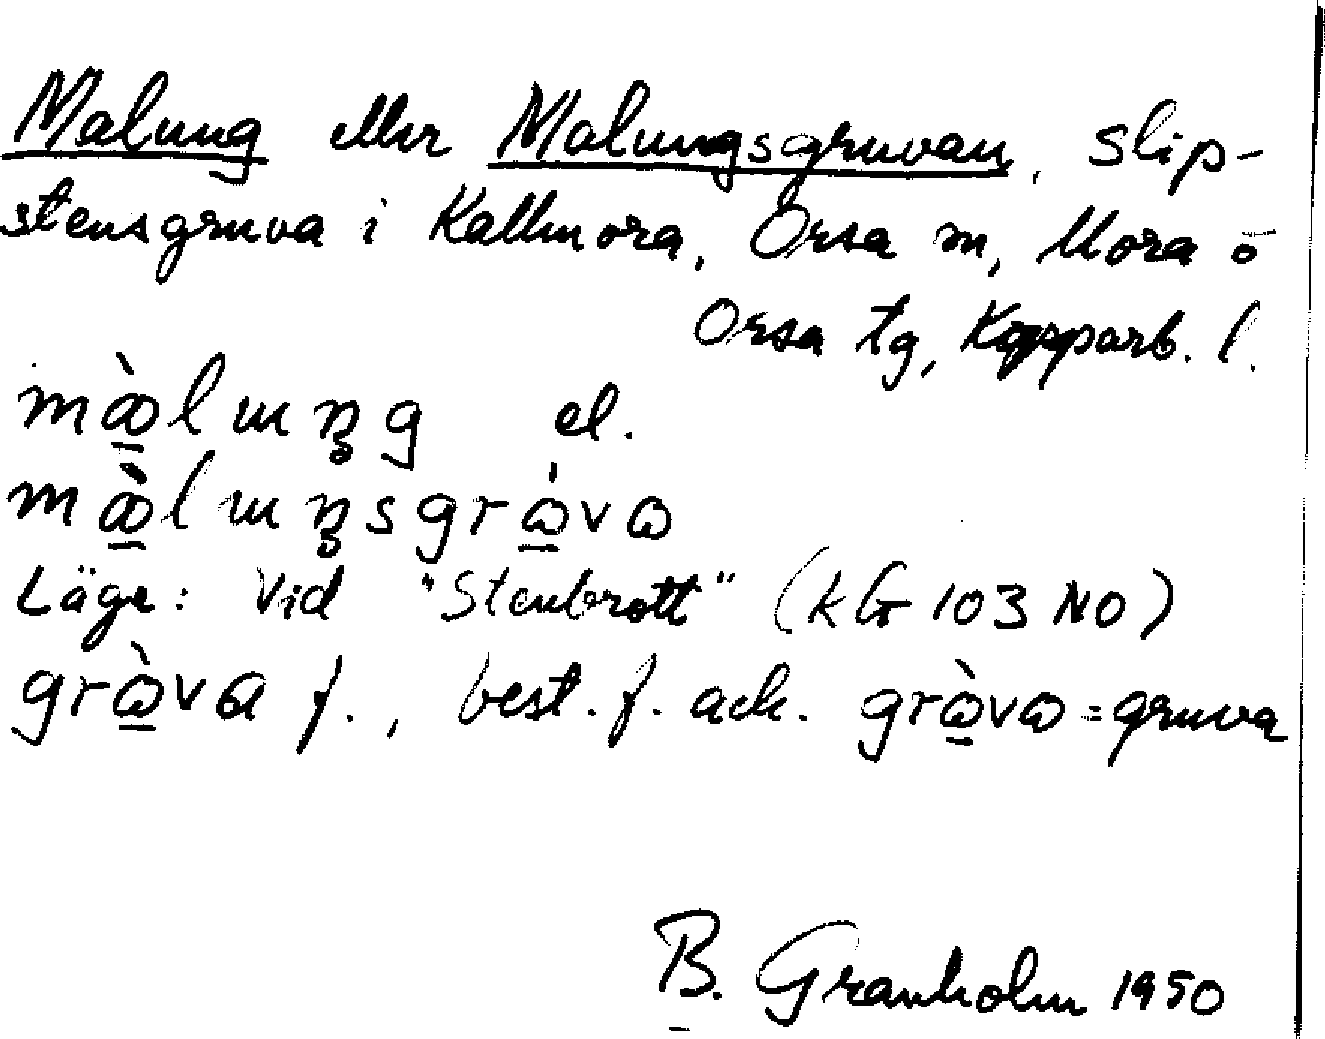 Malung eller Malungsgruvan, slip-
stensgruva i Kallmora, Orsa sn, Mora o
Orsa tg, Kopparb. l.
el.
Läge: Vid "Stenbrott" (kG 103 NO)
f., best. f. ack. = gruva
B. Granholm 1950